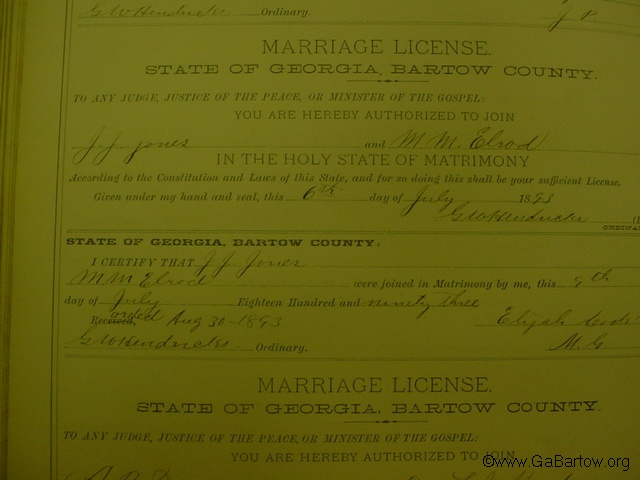 G W Hendricks Ordinary. J. P.
MARRIAGE LICENSE.
STATE OF GEORGIA, BARTOW COUNTY.
TO ANY JUDGE, JUSTICE OF THE PEACE, OR MINISTER OF THE GOSPEL:
YOU ARE HEREBY AUTHORIZED TO JOIN
J. J. Jones and M. M. Elrod
IN THE HOLY STATE OF MATRIMONY
According to the Constitution and Laws of this State, and for so doing this shall be your sufficient License.
Given under my hand and seal, this 6th day of July 1893
G W Hendricks
ORDINAR
STATE OF GEORGIA, BARTOW COUNTY:
I CERTIFY THAT J. J. Jones
M M Elrod were joined in Matrimony by me, this 9th
day of July Eighteen Hundred and ninety three
Recorded Aug 30-1893 Elijah
G W Hendricks Ordinary. M. G
MARRIAGE LICENSE.
STATE OF GEORGIA, BARTOW COUNTY.
TO ANY JUDGE, JUSTICE OF THE PEACE, OR MINISTER OF THE GOSPEL:
YOU ARE HEREBY AUTHORIZED TO JOIN
©www.GaBartow.org